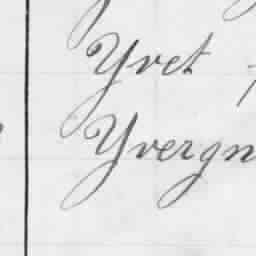 Yvet
Yvergn